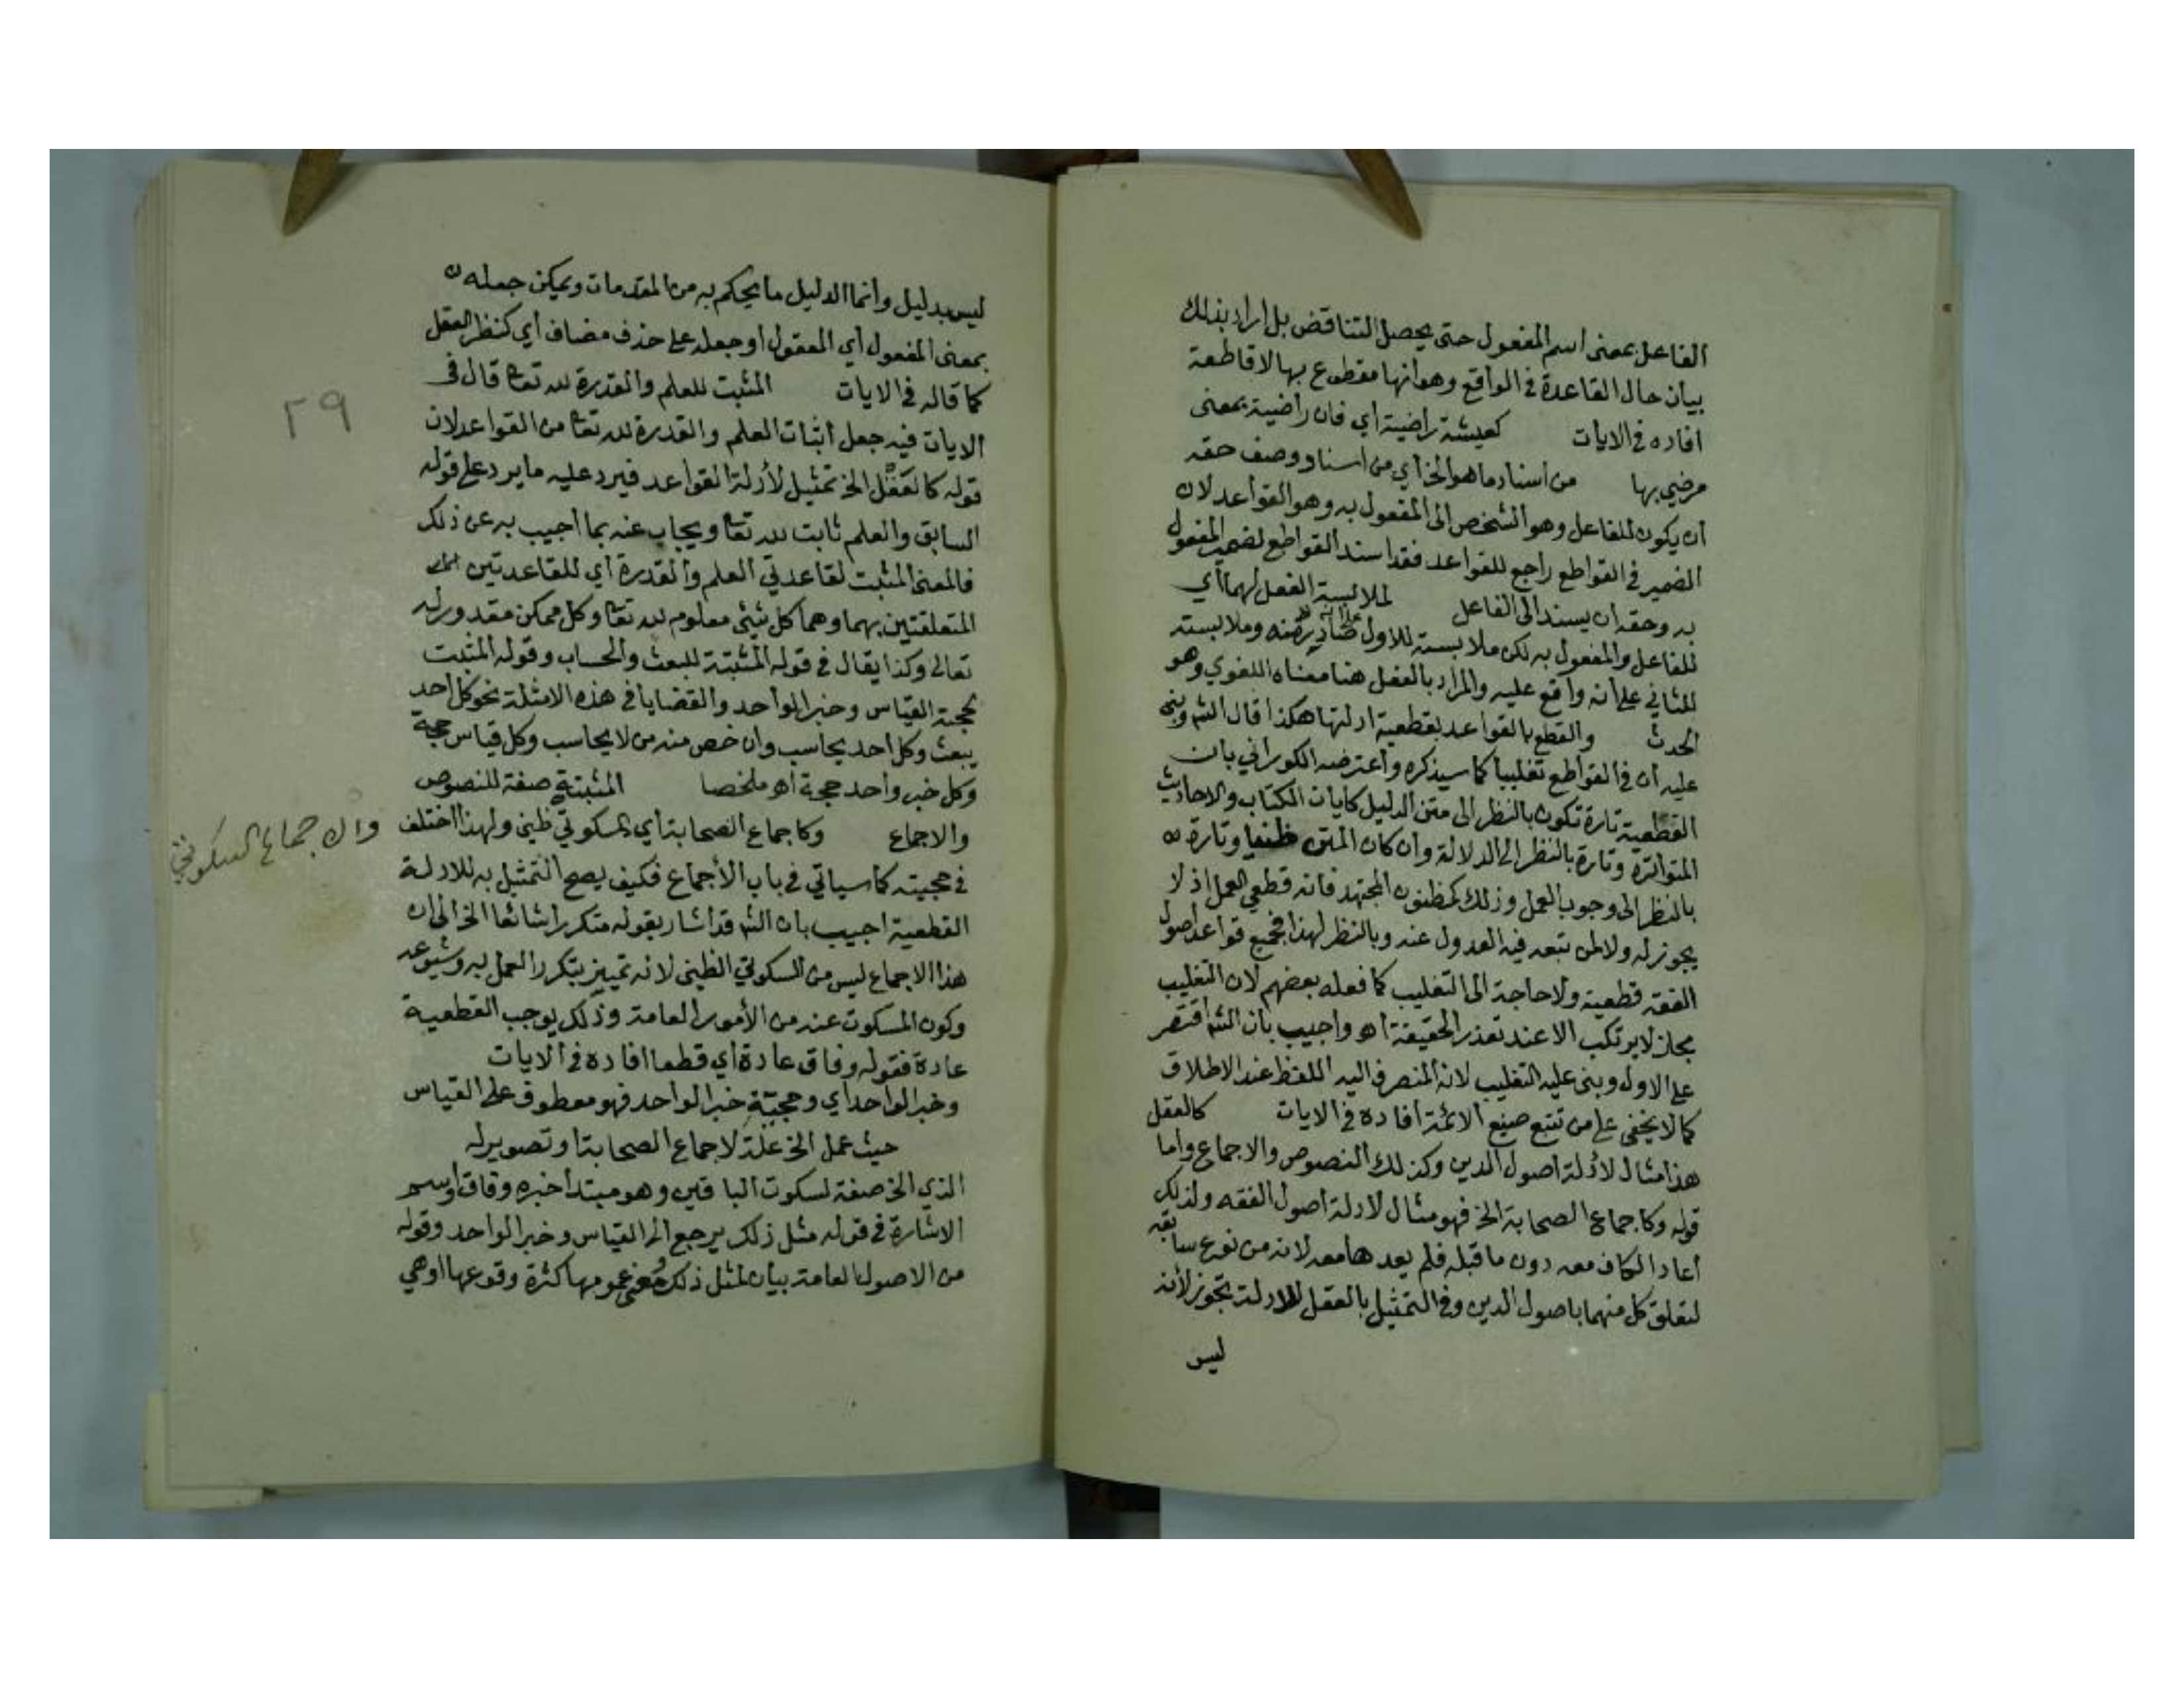 الفاعل بمعنى اسم المفعول حتى يحصل التناقض بل اراد بذلك
بيان حال القاعدة في الواقع وهو انها مقطوع بها لا قاطعة
افاده في الايات كعيشة راضية اي فان راضية بمعنى
مرضي بها من اسناد ما هو الخ اي من اسناد وصف حقه
ان يكون للفاعل وهو الشخص الى المفعول به وهو القواعد لان
الضمير في القواطع راجع للقواعد فقد اسند القواطع لضمير المفعول
به وحقه ان يسند الى الفاعل لملابسة الفعل لهما اي
للفاعل والمفعول به لكن ملابسة للاول صادر منه وملابسته
للثاني على انه واقع عليه والمراد بالفعل هنا معناه اللغوي وهو
الحدث والقطع بالقواعد بقطعية ادلتها هكذا قال الشم وبنى
عليه ان في القواطع تغليبا كما سيذكره واعترضه الكوراني بان
القطعية تارة تكون بالنظر الى متن الدليل كايات الكتاب والاحاديث
المتواترة وتارة بالنظر الى الدلالة وان كان المتن ظنيا وتارة
بالنظر الى وجوب العمل وذلك كمظنون المجتهد فانه قطعي العمل اذ لا
يجوز له ولا لمن تبعه فيه العدول عنه وبالنظر لهذا فجميع قواعد اصول
الفقه قطعية ولا حاجة الى التغليب كما فعله بعضهم لان التغليب
مجاز لا يرتكب الا عند تعذر الحقيقة اهـ واجيب بان الشم اقتصر
على الاول وبنى عليه التغليب لانه المنصرف اليه اللفظ عند الاطلاق
كما لا يخفى على من تتبع صنيع الائمة افاده في الايات كالعقل
هذا مثال لادلة اصول الدين وكذلك النصوص والاجماع واما
قوله وكاجماع الصحابة الخ فهو مثال لادلة اصول الفقه ولذلك
اعاد الكاف معه دون ما قبله فلم يعدها معه لانه من نوع سابقه
لتعلق كل منهما باصول الدين وفي التمثيل بالعقل للادلة تجوز لانه
ليس
ليس بدليل وانما الدليل ما يحكم به من المقدمات ويمكن جعله
بمعنى المفعول اي المعقول او جعله على حذف مضاف اي كنظر العقل
كما قاله في الايات المثبت للعلم والقدرة لله تعا قال في
الايات فيه جعل اثبات العلم والقدرة لله تعا من القواعد لان
قوله كالعقل الخ تمثيل لأدلة القواعد فيرد عليه ما يرد على قوله
السابق والعلم ثابت لله تعا ويجاب عنه بما اجيب به عن ذلك
فالمعنى المثبت لقاعدتي العلم والقدرة اي للقاعدتين
المتعلقتين بهما وهما كل شيئ معلوم لله تعا وكل ممكن مقدور له
تعالى وكذا يقال في قوله المثبتة للبعث والحساب وقوله المثبت
لحجية القياس وخبر الواحد والقضايا في هذه الامثلة نحو كل احد
يبعث وكل احد يحاسب وان خص منه من لا يحاسب وكل قياس حجة
وكل خبر واحد حجة اهـ ملخصا المثبتة صفة للنصوص
والاجماع وكاجماع الصحابة اي السكوتي ظني ولهذا اختلف
والاجماع السكوتي
في حجيته كما سياتي في باب الأجماع فكيف يصح التمثيل به للادلة
القطعية اجيب بان الشم قد اشار بقوله متكررا شائعا الخ الى ان
هذا الاجماع ليس من السكوتي الظني لانه تميز بتكرر العمل به وشيوعه
وكون المسكوت عنه من الأمور العامة وذلك يوجب القطعية
عادة فقوله وفاق عادة اي قطعا افاده في الايات
وخبر الواحد اي وحجية خبر الواحد فهو معطوف على القياس
حيث عمل الخ علة لاجماع الصحابة او تصوير له
الذي الخ صفة لسكوت الباقين وهو مبتدا خبره وفاق واسم
الاشارة في قوله مثل ذلك يرجع الى القياس وخبر الواحد وقوله
من الاصول العامة بيان لمثل ذلك ومعنى عمومها كثرة وقوعها او هي
٢٩